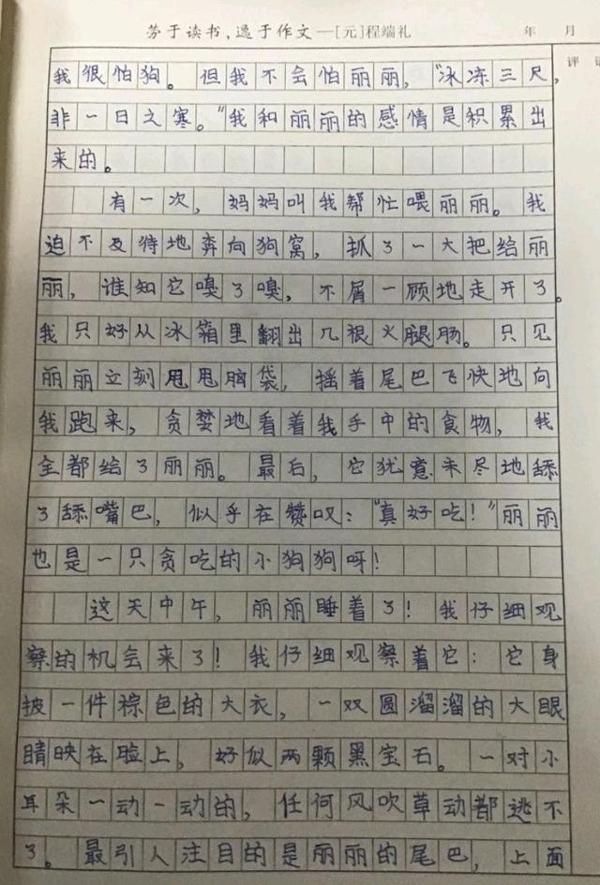 劳于读书，逸于作文—[元]程端礼
年 月
评
我很怕狗。但我不会怕丽丽，“冰冻三尺，
非一日之寒。”我和丽丽的感情是积累出
来的。
有一次，妈妈叫我帮忙喂丽丽。我
迫不及待地奔向狗窝，抓了一大把给丽
丽，谁知它嗅了嗅，不屑一顾地走开了。
我只好从冰箱里翻出几根火腿肠。只见
丽丽立刻甩甩脑袋，摇着尾巴飞快地向
我跑来，贪婪地看着我手中的食物，我
全都给了丽丽。最后，它犹意未尽地舔
了舔嘴巴，似乎在赞叹：“真好吃！”丽丽
也是一只贪吃的小狗狗呀！
这天中午，丽丽睡着了！我仔细观
察的机会来了！我仔细观察着它：它身
披一件棕色的大衣，一双圆溜溜的大眼
睛映在脸上，好似两颗黑宝石。一对小
耳朵一动一动的，任何风吹草动都逃不
了。最引人注目的是丽丽的尾巴，上面